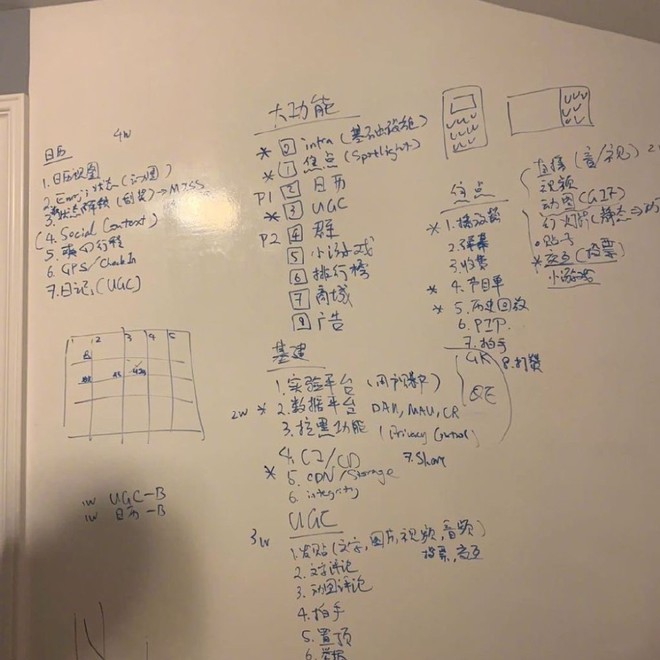 4W
日历
1. 日历视图
2. Emoji 状态 (心情图)
3. 状态 → MISS
(4. Social Context)
5. 行程
6. GPS/Check In
7. 日记 (UGC)
1 2 3 4 5
1w UGC-B
1w 日历-B
大功能
* 0 infra (基础设施)
* 1 焦点 (Spotlight)
P1 2 日历
* 3 UGC
P2 4 群
5 小游戏
6 排行榜
7 商城
8 广告
基建
1. 实验平台
2w * 2. 数据平台 DAU, MAU, CR
3. 拉黑功能 (Privacy Control)
4. CI/CD 7. Share
* 5. CDN/Storage
6. integrity
3w UGC
1. 发帖 (文字, 图片, 视频, 音频)
投票
2. 文字评论
3. 动图评论
4. 拍手
5. 置顶
6. 举报
焦点
* 1. 播放
2. 弹幕
3. 收费
* 4. 节目单
* 5. 历史回放
6. PIP.
7. 拍手
8. 打赏
4K
QE
直播 (音/视)
视频
动图 (GIF)
幻灯片 (静态 ⇒
* 交互 (投票)
小游戏